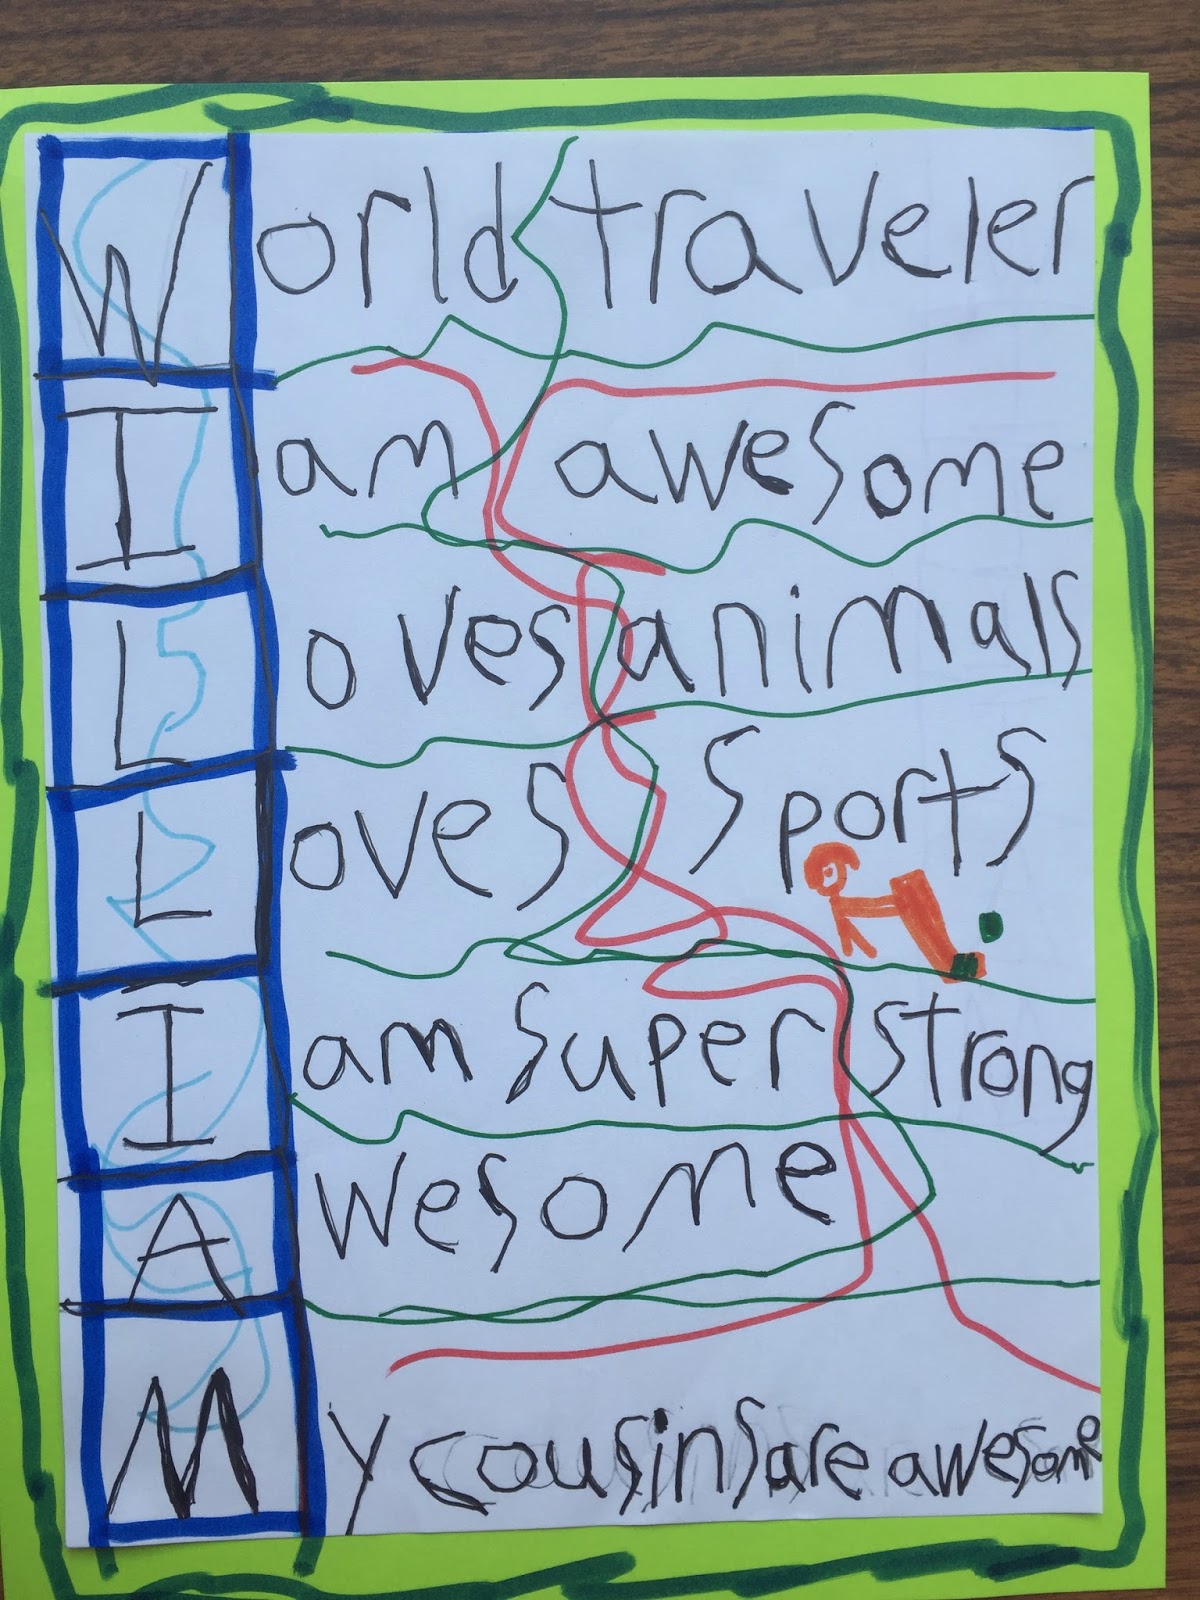 World traveler
I am awesome
Loves animals
Loves Sports
I am super strong
Awesome
My cousins are awesome